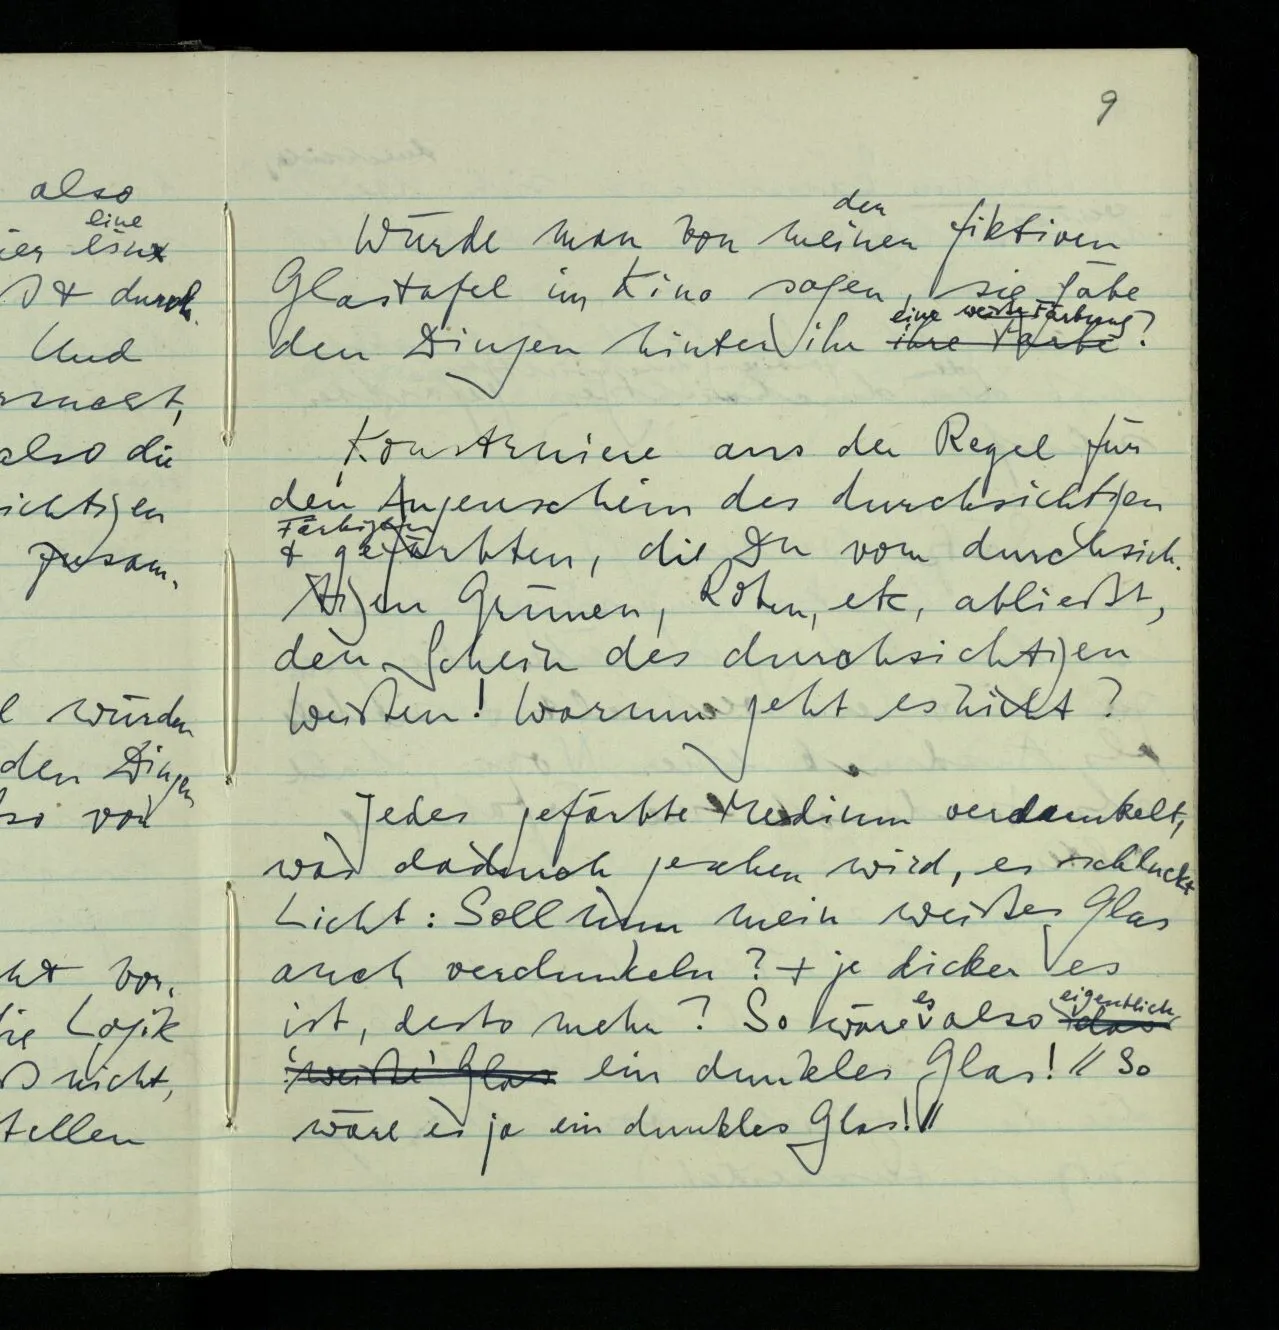 also
eine
& durch
Und
also die
ichtigen
zusam-
würden
den Dingen
so von
ht vor,
die Logik
nicht,
tellen
9
der
Würde man von meiner fiktiven
Glastafel im Kino sagen, sie gäbe
eine weiße Färbung
den Dingen hinter ihr ihre Farbe?
Konstruiere aus der Regel für
den Augenschein des durchsichtigen
Färbigen
& gefärbten, die Du vom durchsich-
tigen Grünen, Roten, etc, abließt,
den Schein des durchsichtigen
Weißen! Warum geht es nicht?
Jedes gefärbte Medium verdunkelt,
was dadurch gesehen wird, es schluckt
Licht: Soll nun mein weißes Glas
auch verdunkeln? + je dicker es
es eigentlich
ist, desto mehr? So wäre also das
'weiße' Glas ein dunkles Glas! // So
wäre es ja ein dunkles Glas! //